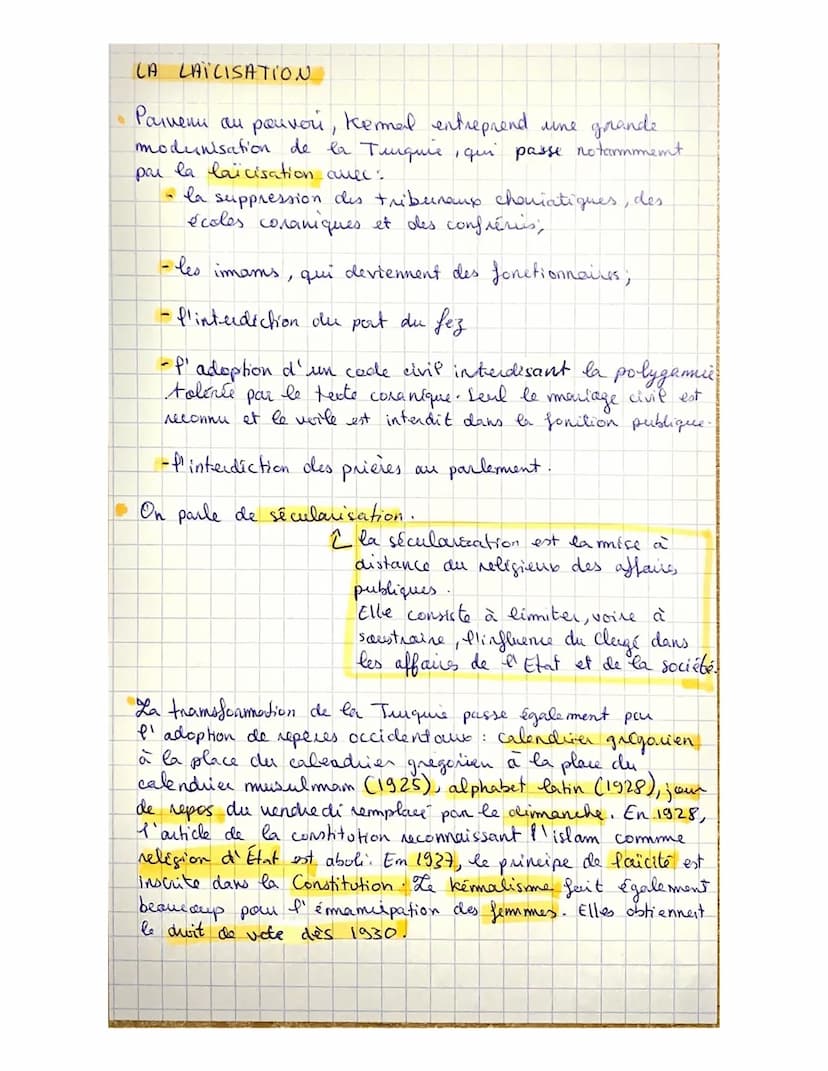 LA LAÏCISATION
Parvenu au pouvoir, Kemal entreprend une grande
modernisation de la Turquie, qui passe notammment
par la laïcisation avec :
- la suppression des tribunaux chariatiques, des
écoles coraniques et des confréries;
- les imams, qui deviennent des fonctionnaires;
- l'interdiction du port du fez
- l'adoption d'un code civil interdisant la polygamie
tolérée par le texte coranique. Seul le mariage civil est
reconnu et le voile est interdit dans la fonction publique.
- l'interdiction des prières au parlement.
On parle de sécularisation.
la sécularisation est la mise à
distance du religieux des affaires
publiques.
Elle consiste à limiter, voire à
soustraire, l'influence du Clergé dans
les affaires de l'Etat et de la société.
La transformation de la Turquie passe également par
l'adoption de repères occidentaux : calendrier grégorien
à la place du calendrier gregorien à la place du
calendrier musulmam (1925), alphabet latin (1928), jour
de repos du vendredi remplacé par le dimanche. En 1928,
l'article de la constitution reconnaissant l'islam commme
religion d'État est aboli. En 1937, le principe de laïcité est
inscrite dans la Constitution. Le kémalisme fait également
beaucoup pour l'émmancipation des femmes. Elles obtiennent
le droit de vote dès 1930.